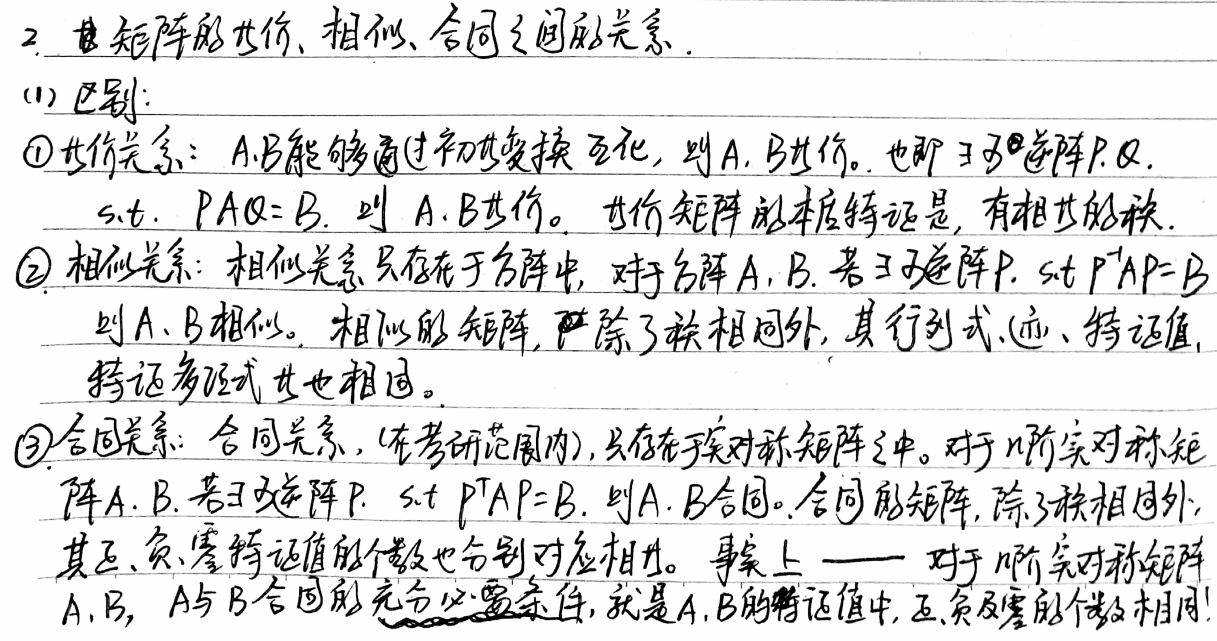 2. 矩阵的等价、相似、合同之间的关系.
(1) 区别:
①等价关系: A.B能够通过初等变换互化, 则A、B等价。也即∃可逆阵P.Q.
s.t. PAQ=B. 则 A.B等价。 等价矩阵的本质特征是, 有相等的秩.
② 相似关系: 相似关系只存在于方阵中, 对于方阵A、B. 若∃可逆阵P. s.t P⁻¹AP=B
则A、B相似。 相似的矩阵, 除了秩相同外, 其行列式、迹、特征值,
特征多项式等也相同。
③合同关系: 合同关系, (在考研范围内), 只存在于实对称矩阵之中。对于n阶实对称矩
阵A.B. 若∃可逆阵P. s.t PᵀAP=B. 则A.B合同。合同的矩阵, 除了秩相同外,
其正、负、零特征值的个数也分别对应相等。 事实上 —— 对于n阶实对称矩阵
A,B, A与B合同的充分必要条件, 就是A.B的特征值中, 正、负及零的个数相同!